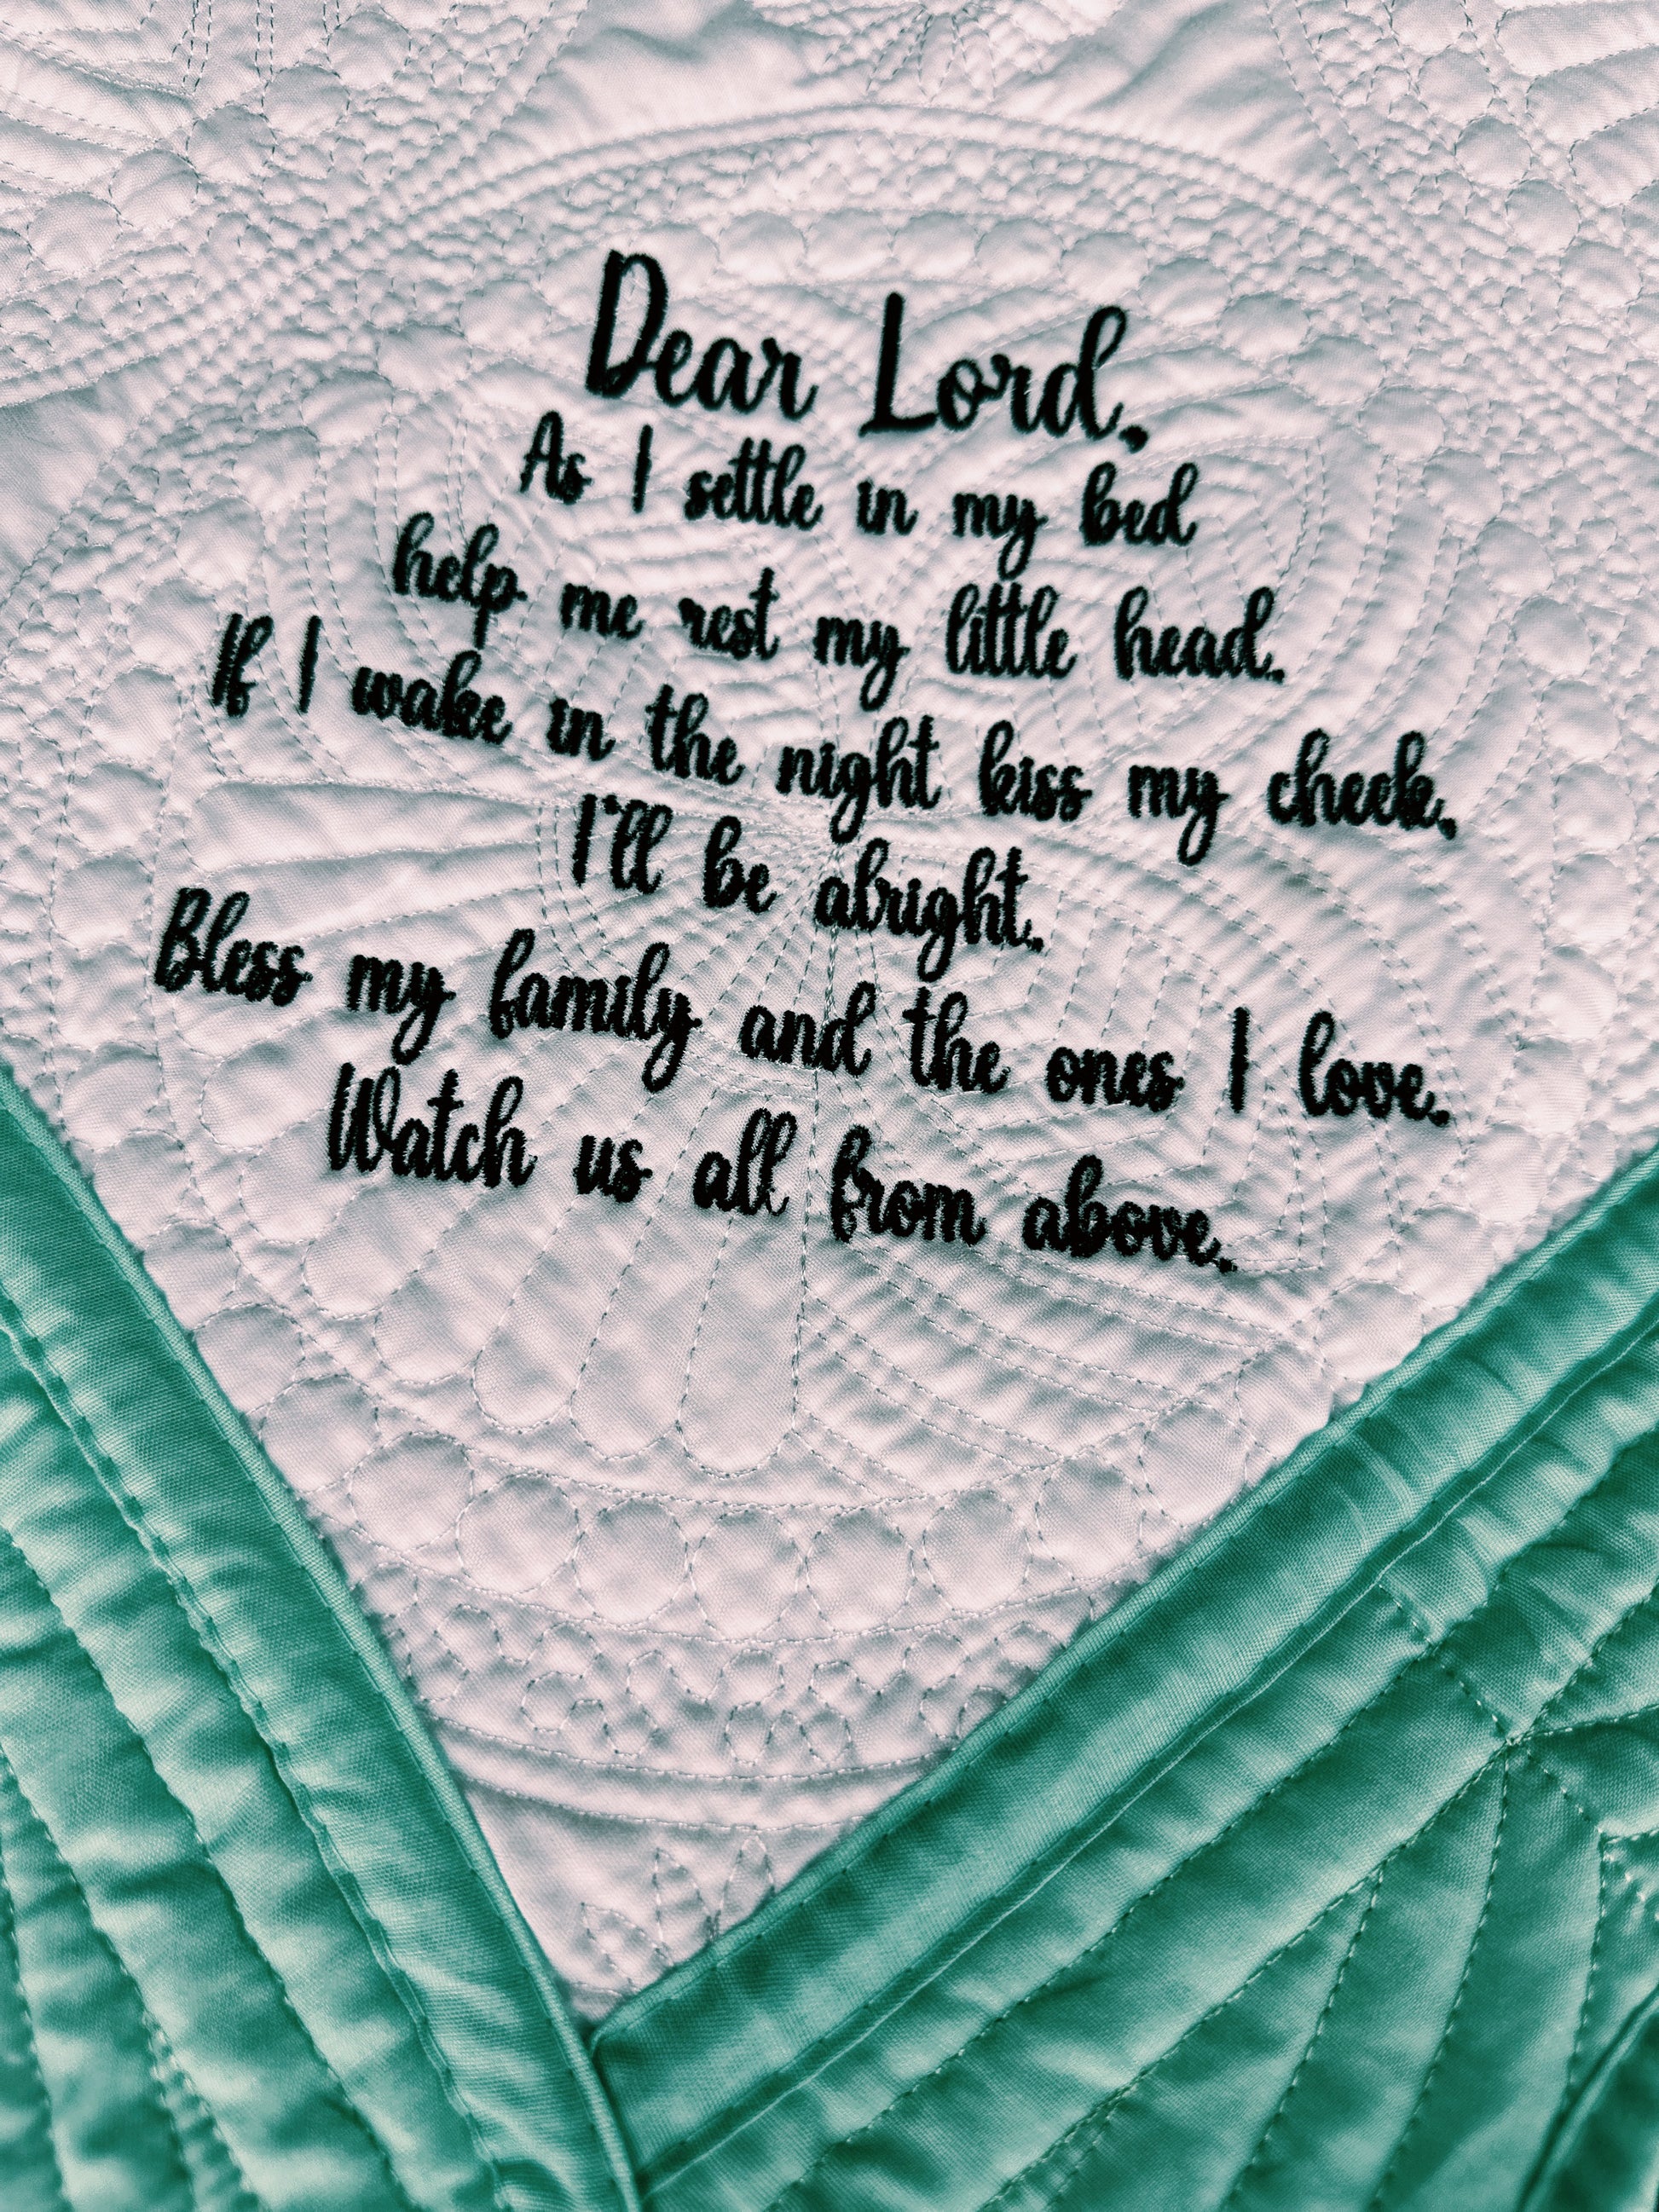 Dear Lord,
As I settle in my bed
help me rest my little head.
If I wake in the night kiss my cheek,
I'll be alright.
Bless my family and the ones I love.
Watch us all from above.